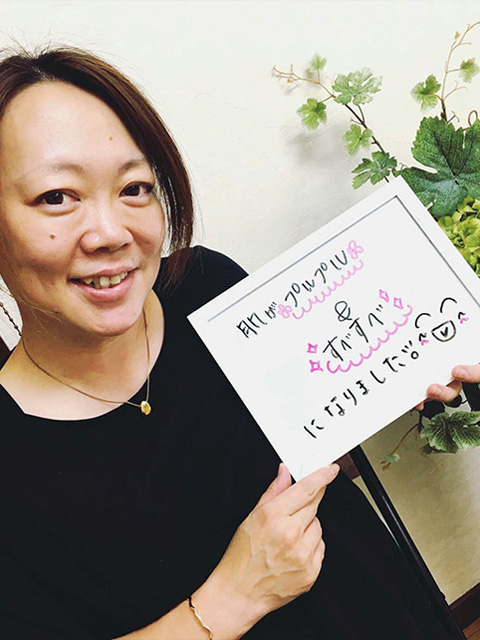 肌がプルプル
&
すべすべ
になりました。